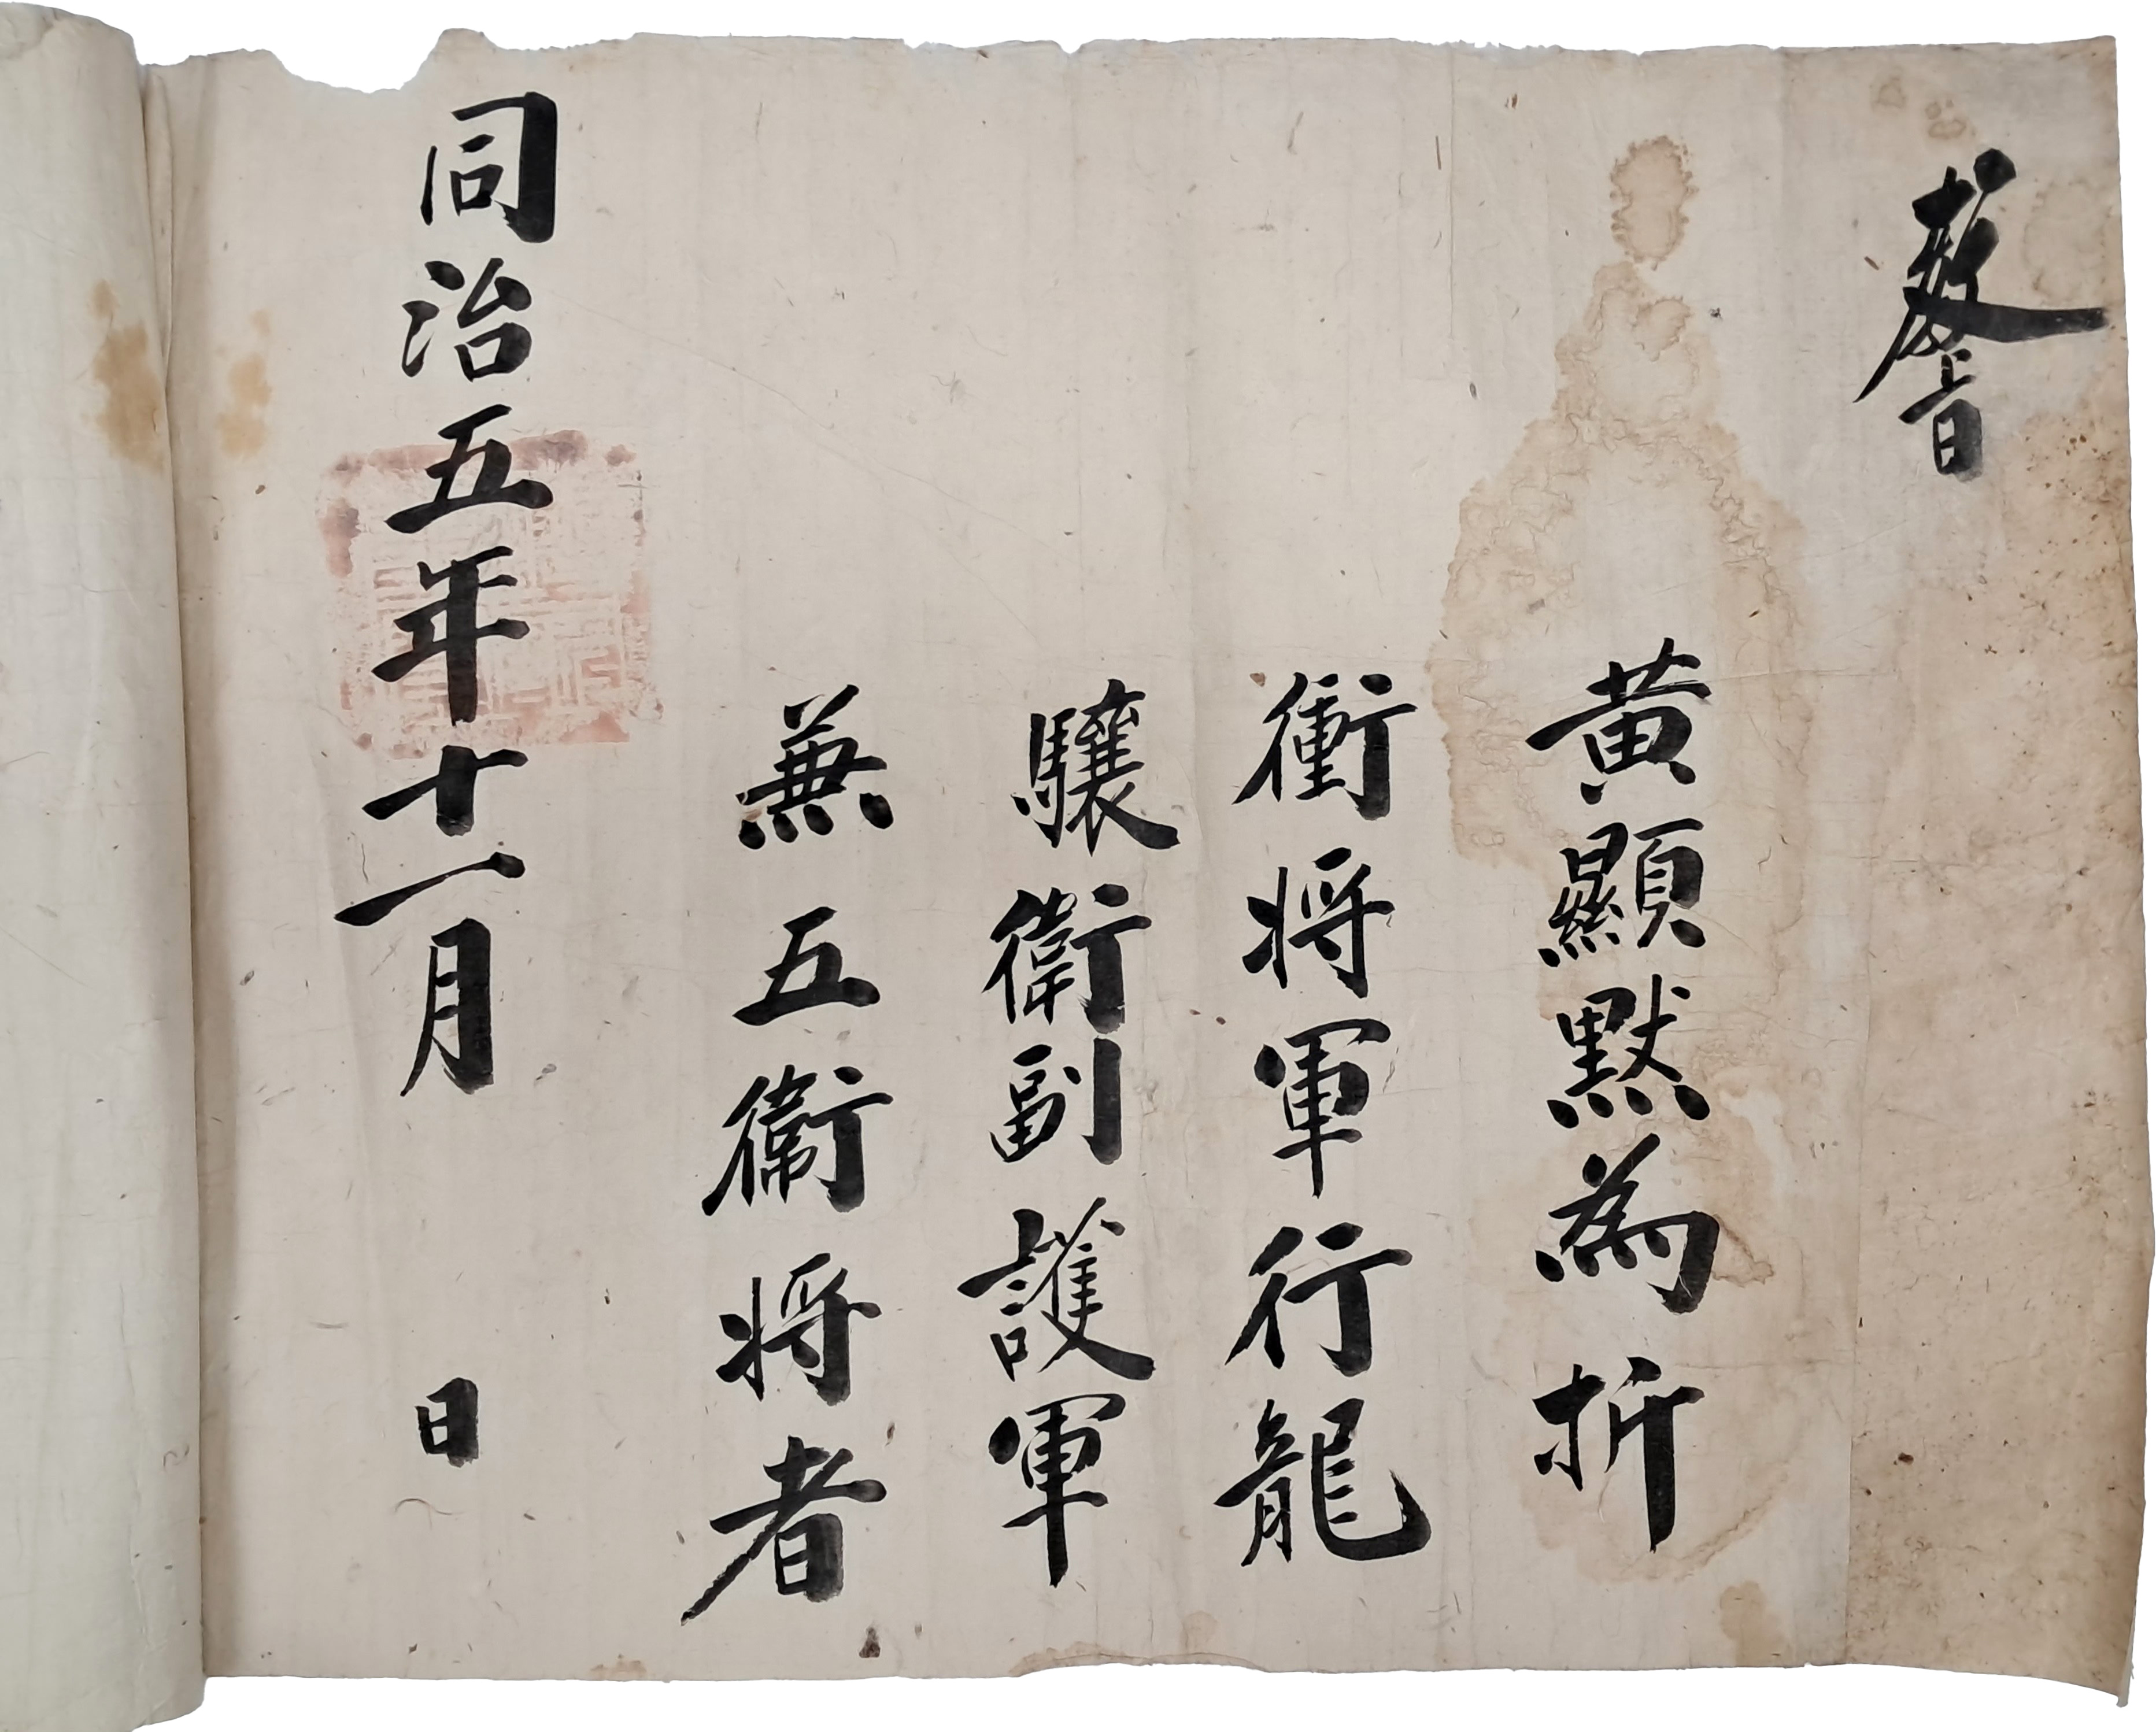 教旨
黃顯默為折
衝将軍行龍
驤衛副護軍
兼五衛将者
同治五年十一月　日